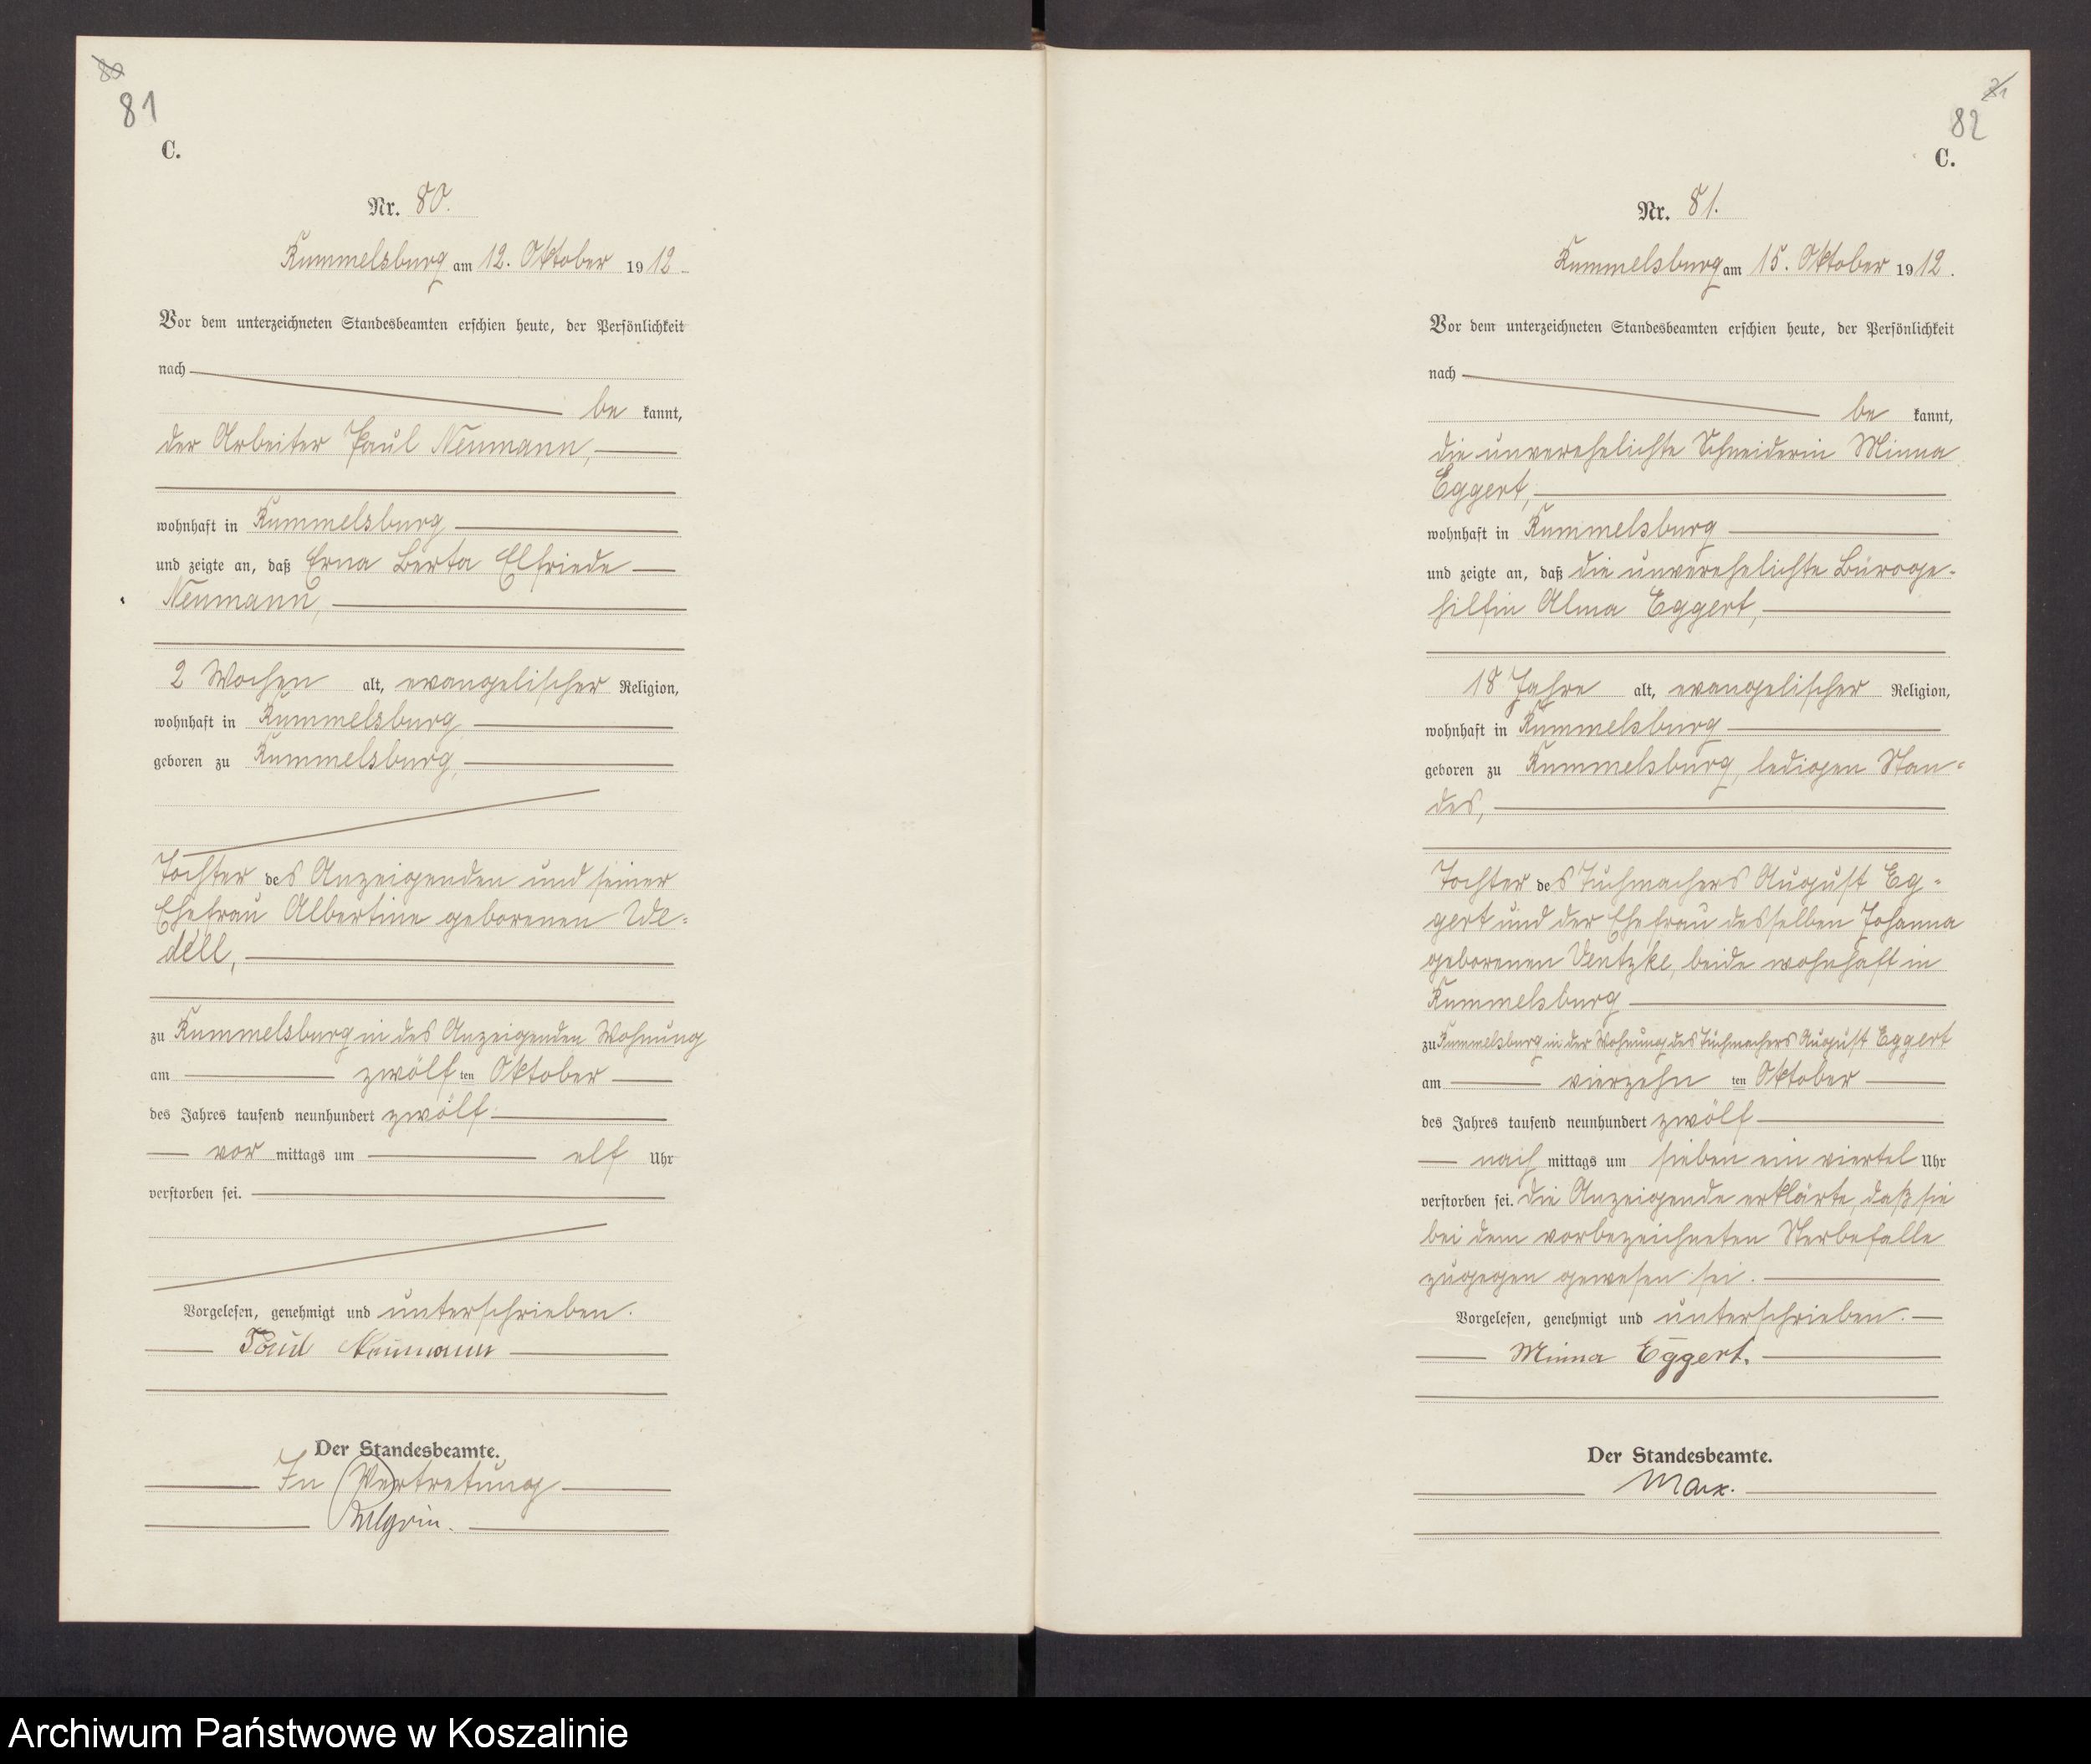 80
81
C.
Nr. 80.
Rummelsburg am 12. Oktober 1912
Vor dem unterzeichneten Standesbeamten erschien heute, der Persönlichkeit
nach
be kannt,
der Arbeiter Paul Neumann,
wohnhaft in Rummelsburg
und zeigte an, daß Erna Berta Elfriede
Neumann,
2 Wochen alt, evangelischer Religion,
wohnhaft in Rummelsburg
geboren zu Rummelsburg,
Tochter des Anzeigenden und seiner
Ehefrau Albertine geborenen We=
dell,
zu Rummelsburg in des Anzeigenden Wohnung
am zwölf ten Oktober
des Jahres tausend neunhundert zwölf
vor mittags um elf Uhr
verstorben sei.
Vorgelesen, genehmigt und unterschrieben.
Paul Neumann
Der Standesbeamte.
In Vertretung
82
C.
Nr. 81.
Rummelsburg am 15. Oktober 1912.
Vor dem unterzeichneten Standesbeamten erschien heute, der Persönlichkeit
nach
be kannt,
die unverehelichte Schneiderin Minna
Eggert,
wohnhaft in Rummelsburg
und zeigte an, daß die unverehelichte Büroge=
hilfin Alma Eggert,
18 Jahre alt, evangelischer Religion,
wohnhaft in Rummelsburg
geboren zu Rummelsburg, ledigen Stan=
des,
Tochter des Tuchmachers August Eg=
gert und der Ehefrau desselben Johanna
geborenen Ventzke, beide wohnhaft in
Rummelsburg
zu Rummelsburg in der Wohnung des Tuchmachers August Eggert
am vierzehn ten Oktober
des Jahres tausend neunhundert zwölf
nach mittags um sieben ein viertel Uhr
verstorben sei. Die Anzeigende erklärte, daß sie
bei dem vorbezeichneten Sterbefalle
zugegen gewesen sei.
Vorgelesen, genehmigt und unterschrieben.
Minna Eggert.
Der Standesbeamte.
Marx.
Archiwum Państwowe w Koszalinie